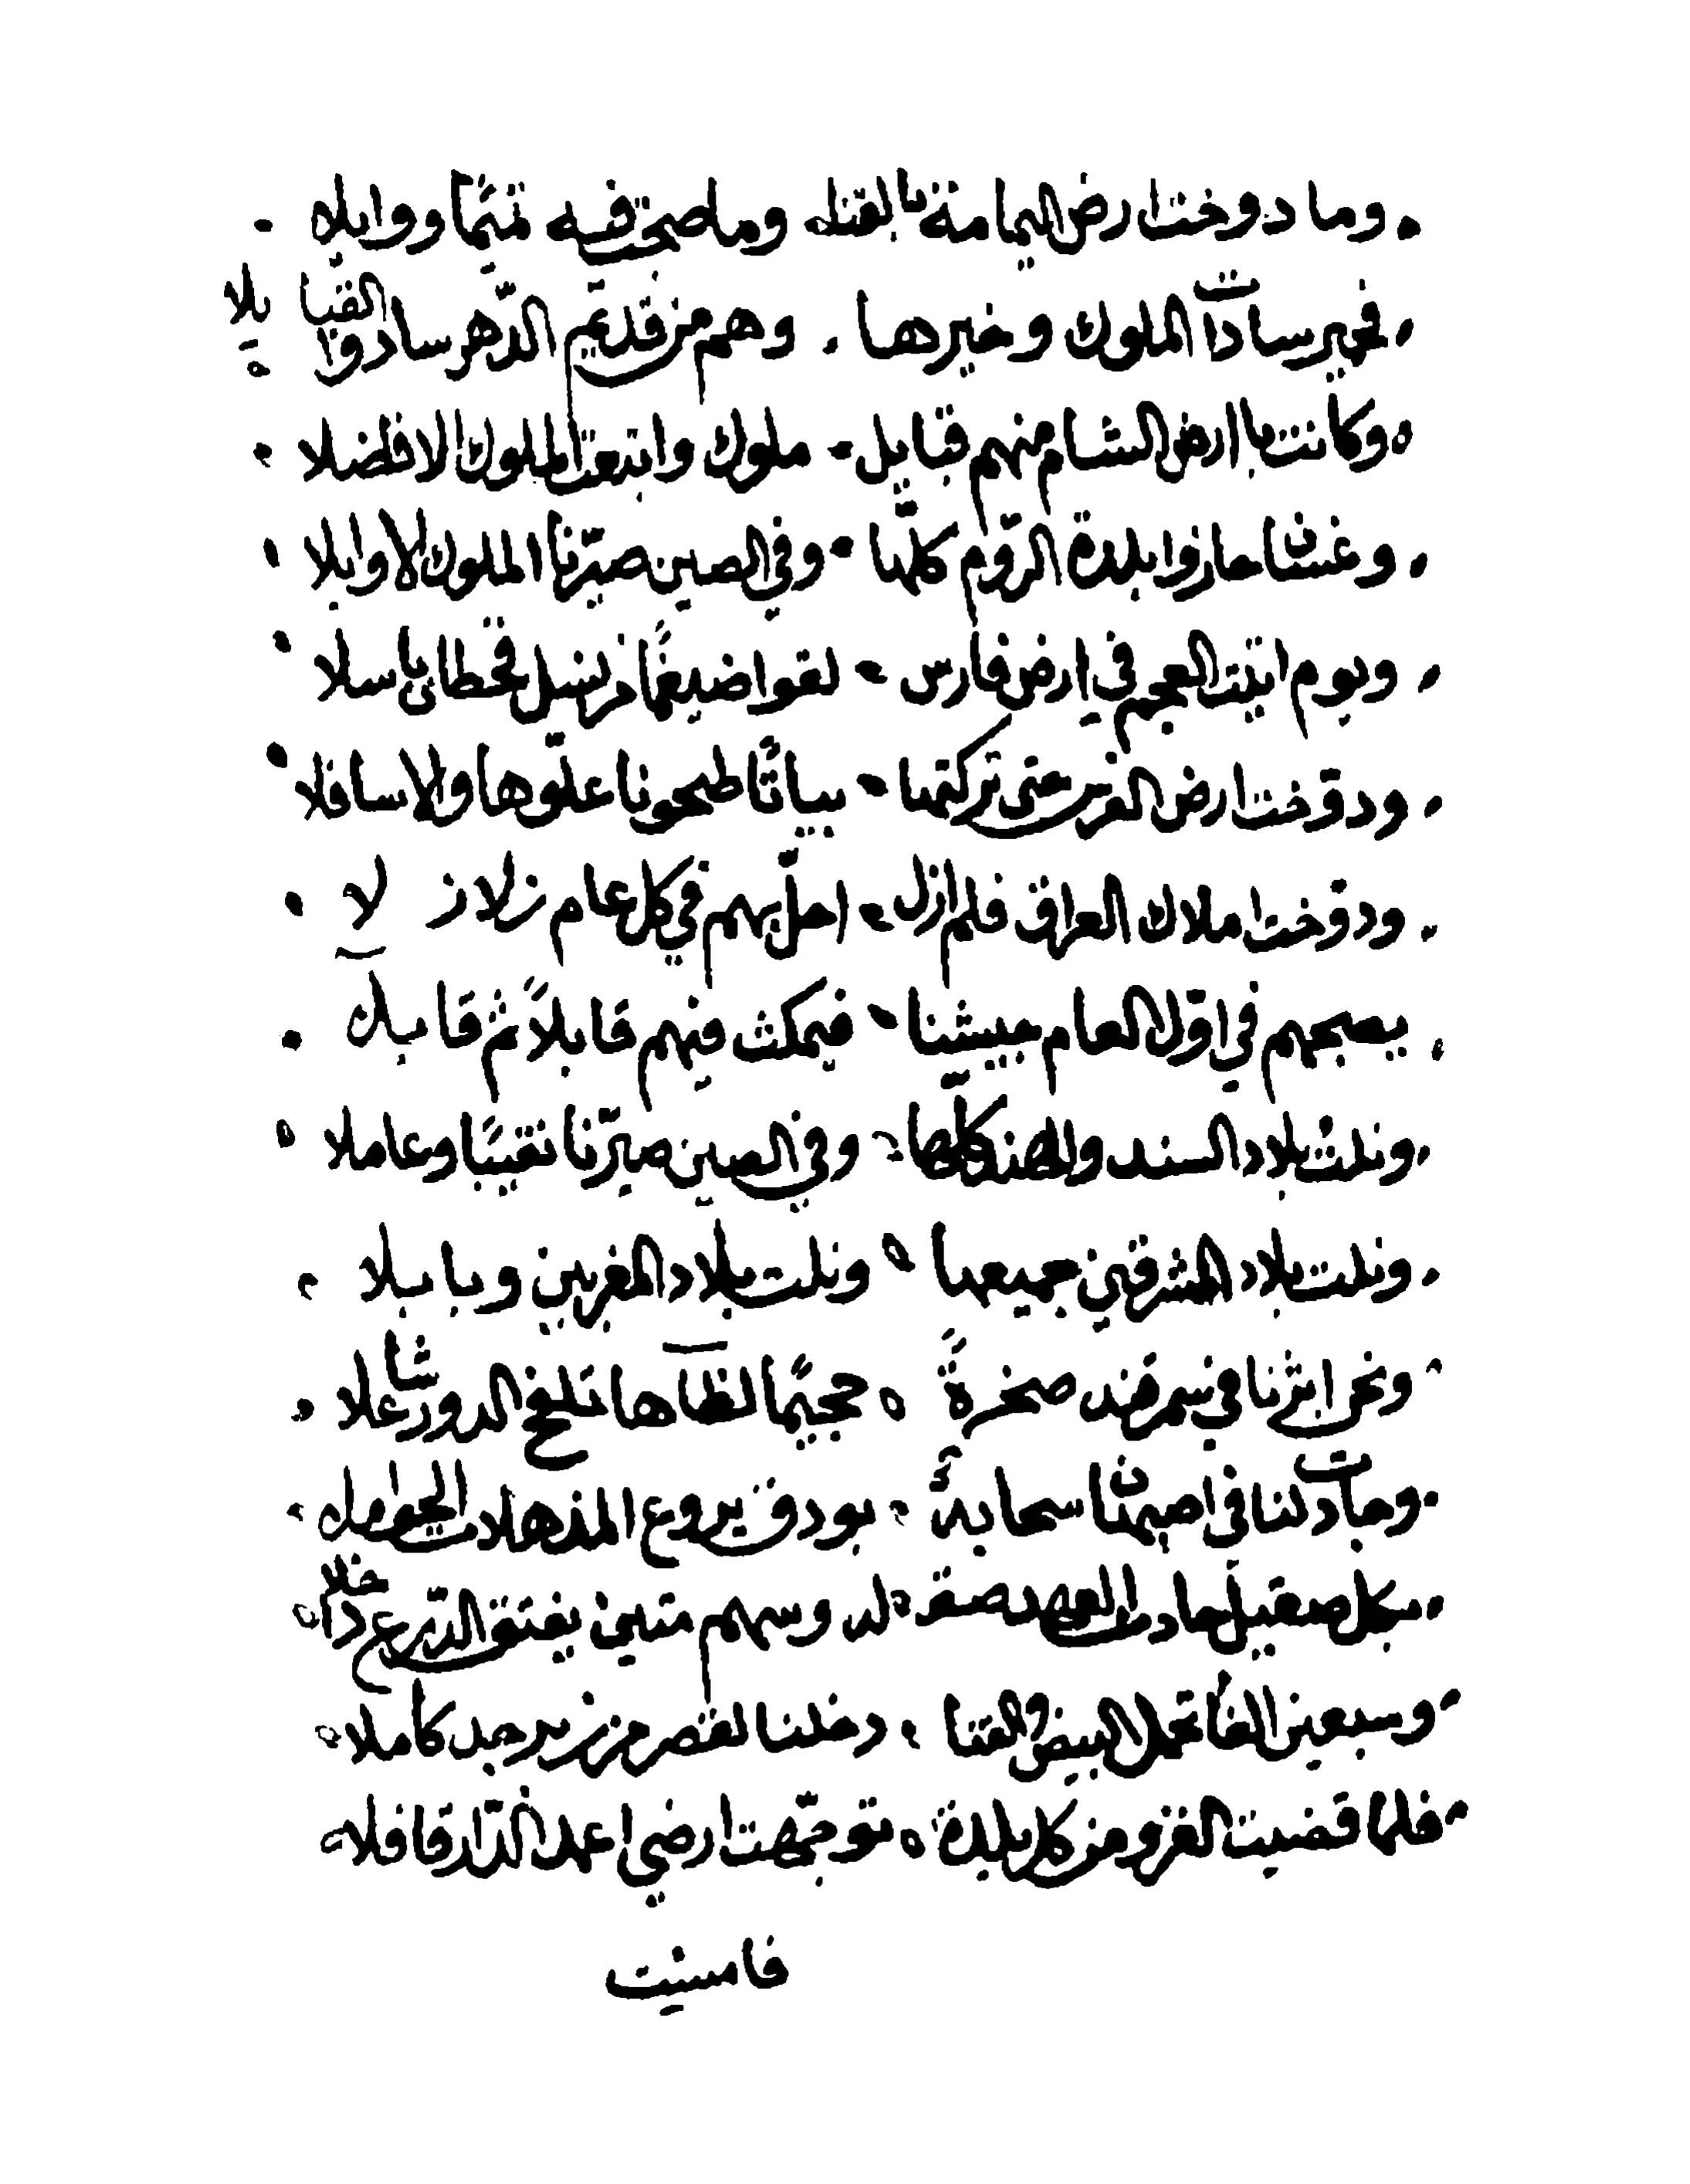 وما دوخت ارض اليمامة بالقنا وما صحت فيه تيما ووايلاه
فحمير سادات الملوك وخيرها وهم من قديم الدهر سادوا القبايلا
وكانت باارض الشام منهم قبايل ملوك وابتعت الملوك الافضلا
وغسان حازوا بلدة الروم كلها وفي الصين صيرنا الملوك الاوايلا
ويوم اتيت العجم في ارض فارس لقوا ضيغما من نسل قحطان باسلا
ودوخت ارض الفرس حتى تركتها بياتا طحونا علوها والاسافلا
ودوخت املاك العراق فلم ازل احل بهم في كل عام زلازلا
يصبحهم في اول العام جيشنا فيمكث فيهم قابلا ثم قابل
ونلت بلاد السند والهند كلها وفي الصين صيرنا نقيبا وعاملا
ونلت بلاد المشرقين جميعها ونلت بلاد المغربين وبابلا
ونحن اثرنا في سمرقند صخرة جحيما لظاها تلفح الدور شاعلا
وجادت لنا في اصبهان سحابة بودق يروع المذهلات الحوامل
بكل صقيل حادث العهد صقله وسهم متين يفتق الدرع داخلا
وسبعين الفا تحمل البيض والقنا دخلنا لقصر من زبرجد كاملا
فلما قضيت الغزو من كل بلدة توجهت ارضي اعمد الدار قافلا
فامسيت